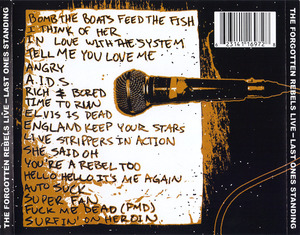 THE FORGOTTEN REBELS LIVE - LAST ONES STANDING
BOMB THE BOATS FEED THE FISH
I THINK OF HER
IN LOVE WITH THE SYSTEM
TELL ME YOU LOVE ME
ANGRY
A.I.D.S.
RICH & BORED
TIME TO RUN
ELVIS IS DEAD
ENGLAND KEEP YOUR STARS
LIVE STRIPPERS IN ACTION
SHE SAID OH
YOU'RE A REBEL TOO
HELLO HELLO IT'S ME AGAIN
AUTO SUCK
SUPER FAN
FUCK ME DEAD (FMD)
SURFIN' ON HEROIN
6 23161 16972 8
THE FORGOTTEN REBELS LIVE - LAST ONES STANDING